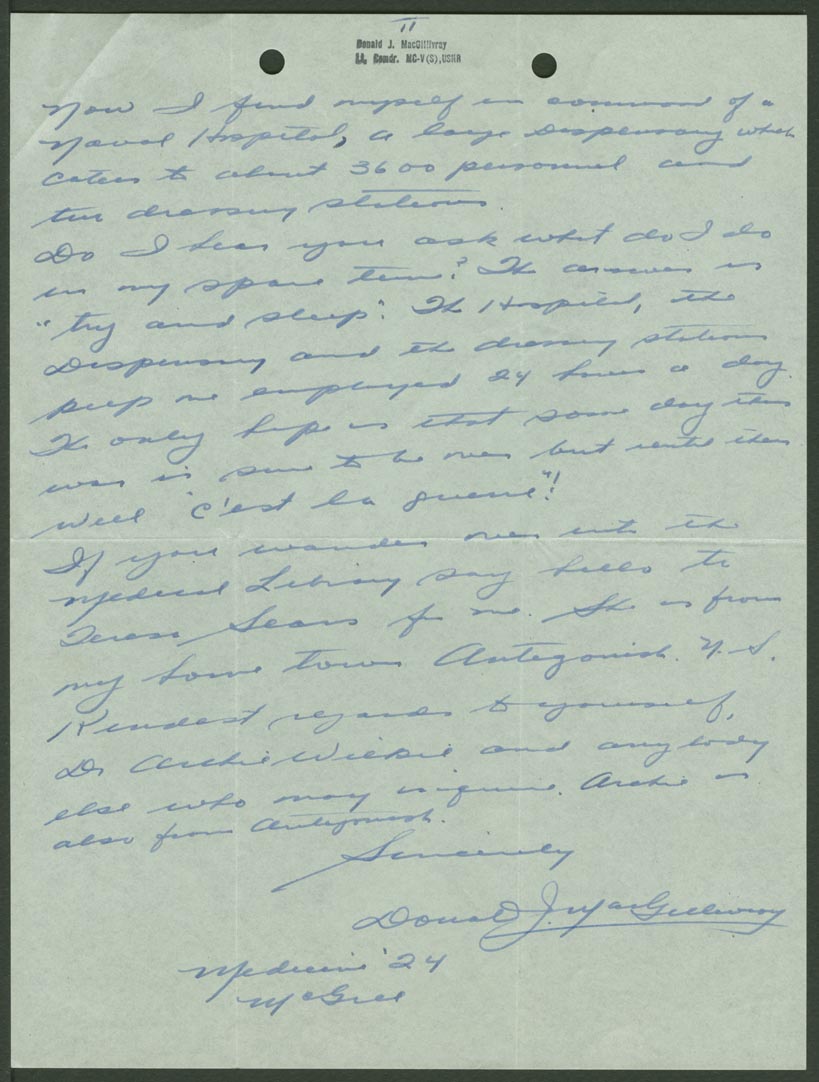 II
Donald J. MacGillivray
Lt. Comdr. MC-V(S), USNR
Now I find myself in command of a
Naval Hospital, a large Dispensary which
caters to about 3600 personnel and
ten dressing stations.
Do I hear you ask what do I do
in my spare time? The answer is
"try and sleep". The Hospital, the
Dispensary and the dressing stations
keep me employed 24 hours a day.
The only hope is that some day this
war is sure to be over but until then
well "c'est la guerre"!
If you wander over into the
Medical Library say hello to
Teresa Sears for me. She is from
my home town Antigonish. N.S.
Kindest regards to yourself,
Dr Archie Wilkie and anybody
else who may inquire. Archie is
also from Antigonish.
Sincerely
Donald J. MacGillivray
Medicine '24
McGill